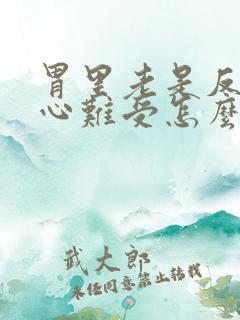 胃里老是反
心難受怎麼
武大郎
未经同意禁止转载